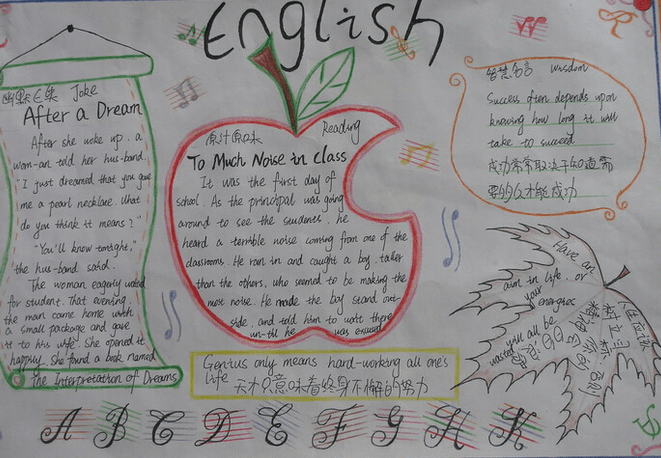 English
幽默一笑 Joke
After a Dream
After she woke up, a
wom-an told her hus-band.
"I just dreamed that you gave
me a pearl necklace. What
do you think it means?"
"You'll know tonight,"
the hus-band said.
The woman eagerly
for student. That evening,
the man came home with
a small package and gave
it to his wife. She opened it
happily. She found a book named
The Interpretation of Dreams
原汁原味 Reading
To Much Noise in Class
It was the first day of
school. As the principal was going
around to see the students, he
heard a terrible noise coming from one of the
classrooms. He ran in and caught a boy, taller
than the others, who seemed to be making the
most noise. He made the boy stand out-
side, and told him to wait there
un-til he was excused
Genius only means hard-working all one's
life
天才只意味着终身不懈的努力
智慧名言 Wisdom
Success often depends upon
knowing how long it will
take to succeed
成功常常取决于知道需
要多久才能成功
Have an
aim in life, or
your energies
will all be
wasted
人生应该
树立目标
否则
你的
精力会
白白
浪费
A B C D E F G H K